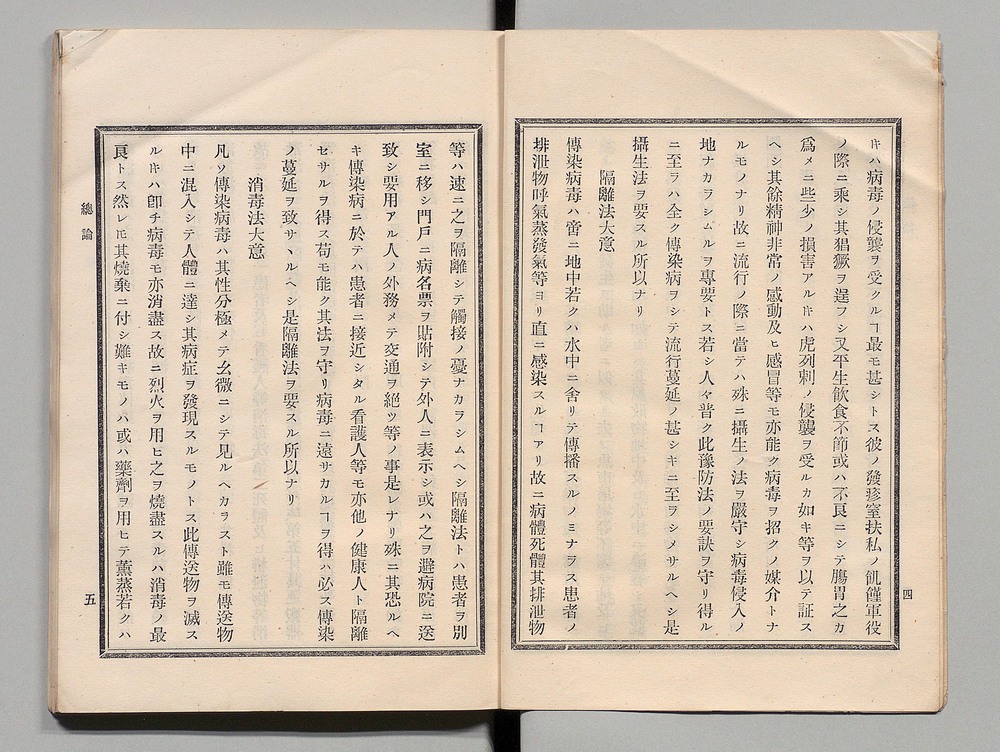 キハ病毒ノ侵襲ヲ受クルヿ最モ甚シトス彼ノ發疹窒扶私ノ飢饉軍役
ノ際ニ乘シ其猖獗ヲ逞フシ又平生飮食不節或ハ不良ニシテ膓胃之カ
爲メニ些少ノ損害アルキハ虎列刺ノ侵襲ヲ受ルカ如キ等ヲ以テ証ス
ヘシ其餘精神非常ノ感動及ヒ感冒等モ亦能ク病毒ヲ招クノ媒介トナ
ルモノナリ故ニ流行ノ際ニ當テハ殊ニ攝生ノ法ヲ嚴守シ病毒侵入ノ
地ナカラシムルヲ專要トス若シ人々普ク此豫防法ノ要訣ヲ守リ得ル
ニ至ラハ全ク傳染病ヲシテ流行蔓延ノ甚シキニ至ヲシメサルヘシ是
攝生法ヲ要スル所以ナリ
隔離法大意
傳染病毒ハ啻ニ地中若クハ水中ニ舍リテ傳播スルノミナラス患者ノ
排泄物呼氣蒸發氣等ヨリ直ニ感染スルヿアリ故ニ病體死體其排泄物
四
等ハ速ニ之ヲ隔離シテ觸接ノ憂ナカラシムヘシ隔離法トハ患者ヲ別
室ニ移シ門戸ニ病名票ヲ貼附シテ外人ニ表示シ或ハ之ヲ避病院ニ送
致シ要用アル人ノ外務メテ交通ヲ絶ツ等ノ事是レナリ殊ニ其恐ルヘ
キ傳染病ニ於テハ患者ニ接近シタル看護人等モ亦他ノ健康人ト隔離
セサルヲ得ス苟モ能ク其法ヲ守リ病毒ニ遠サカルヿヲ得ハ必ス傳染
ノ蔓延ヲ致サヽルヘシ是隔離法ヲ要スル所以ナリ
消毒法大意
凡ソ傳染病毒ハ其性分極メテ幺微ニシテ見ルヘカラスト雖モ傳送物
中ニ混入シテ人體ニ達シ其病症ヲ發現スルモノトス此傳送物ヲ滅ス
ルキハ卽チ病毒モ亦消盡ス故ニ烈火ヲ用ヒ之ヲ燒盡スルハ消毒ノ最
良トス然レ𪜈其燒棄ニ付シ難キモノハ或ハ藥劑ヲ用ヒテ薰蒸若クハ
總論
五